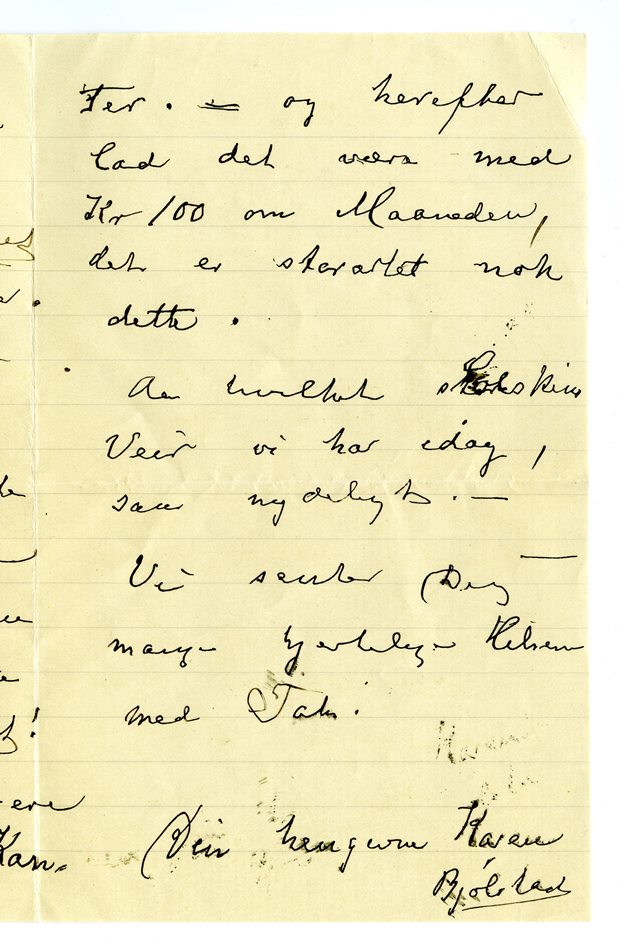 Fer. — og herefter
lad det være med
Kr 100 om Maaneden,
det er storartet nok
dette.
Aa hvilket Solskins
Veir vi har idag,
saa nydeligt. —
Vi sender Dig
mange hjertelige Hilsener
med Tak.
Din hengivne Karen
Bjølstad
ere
Kan.